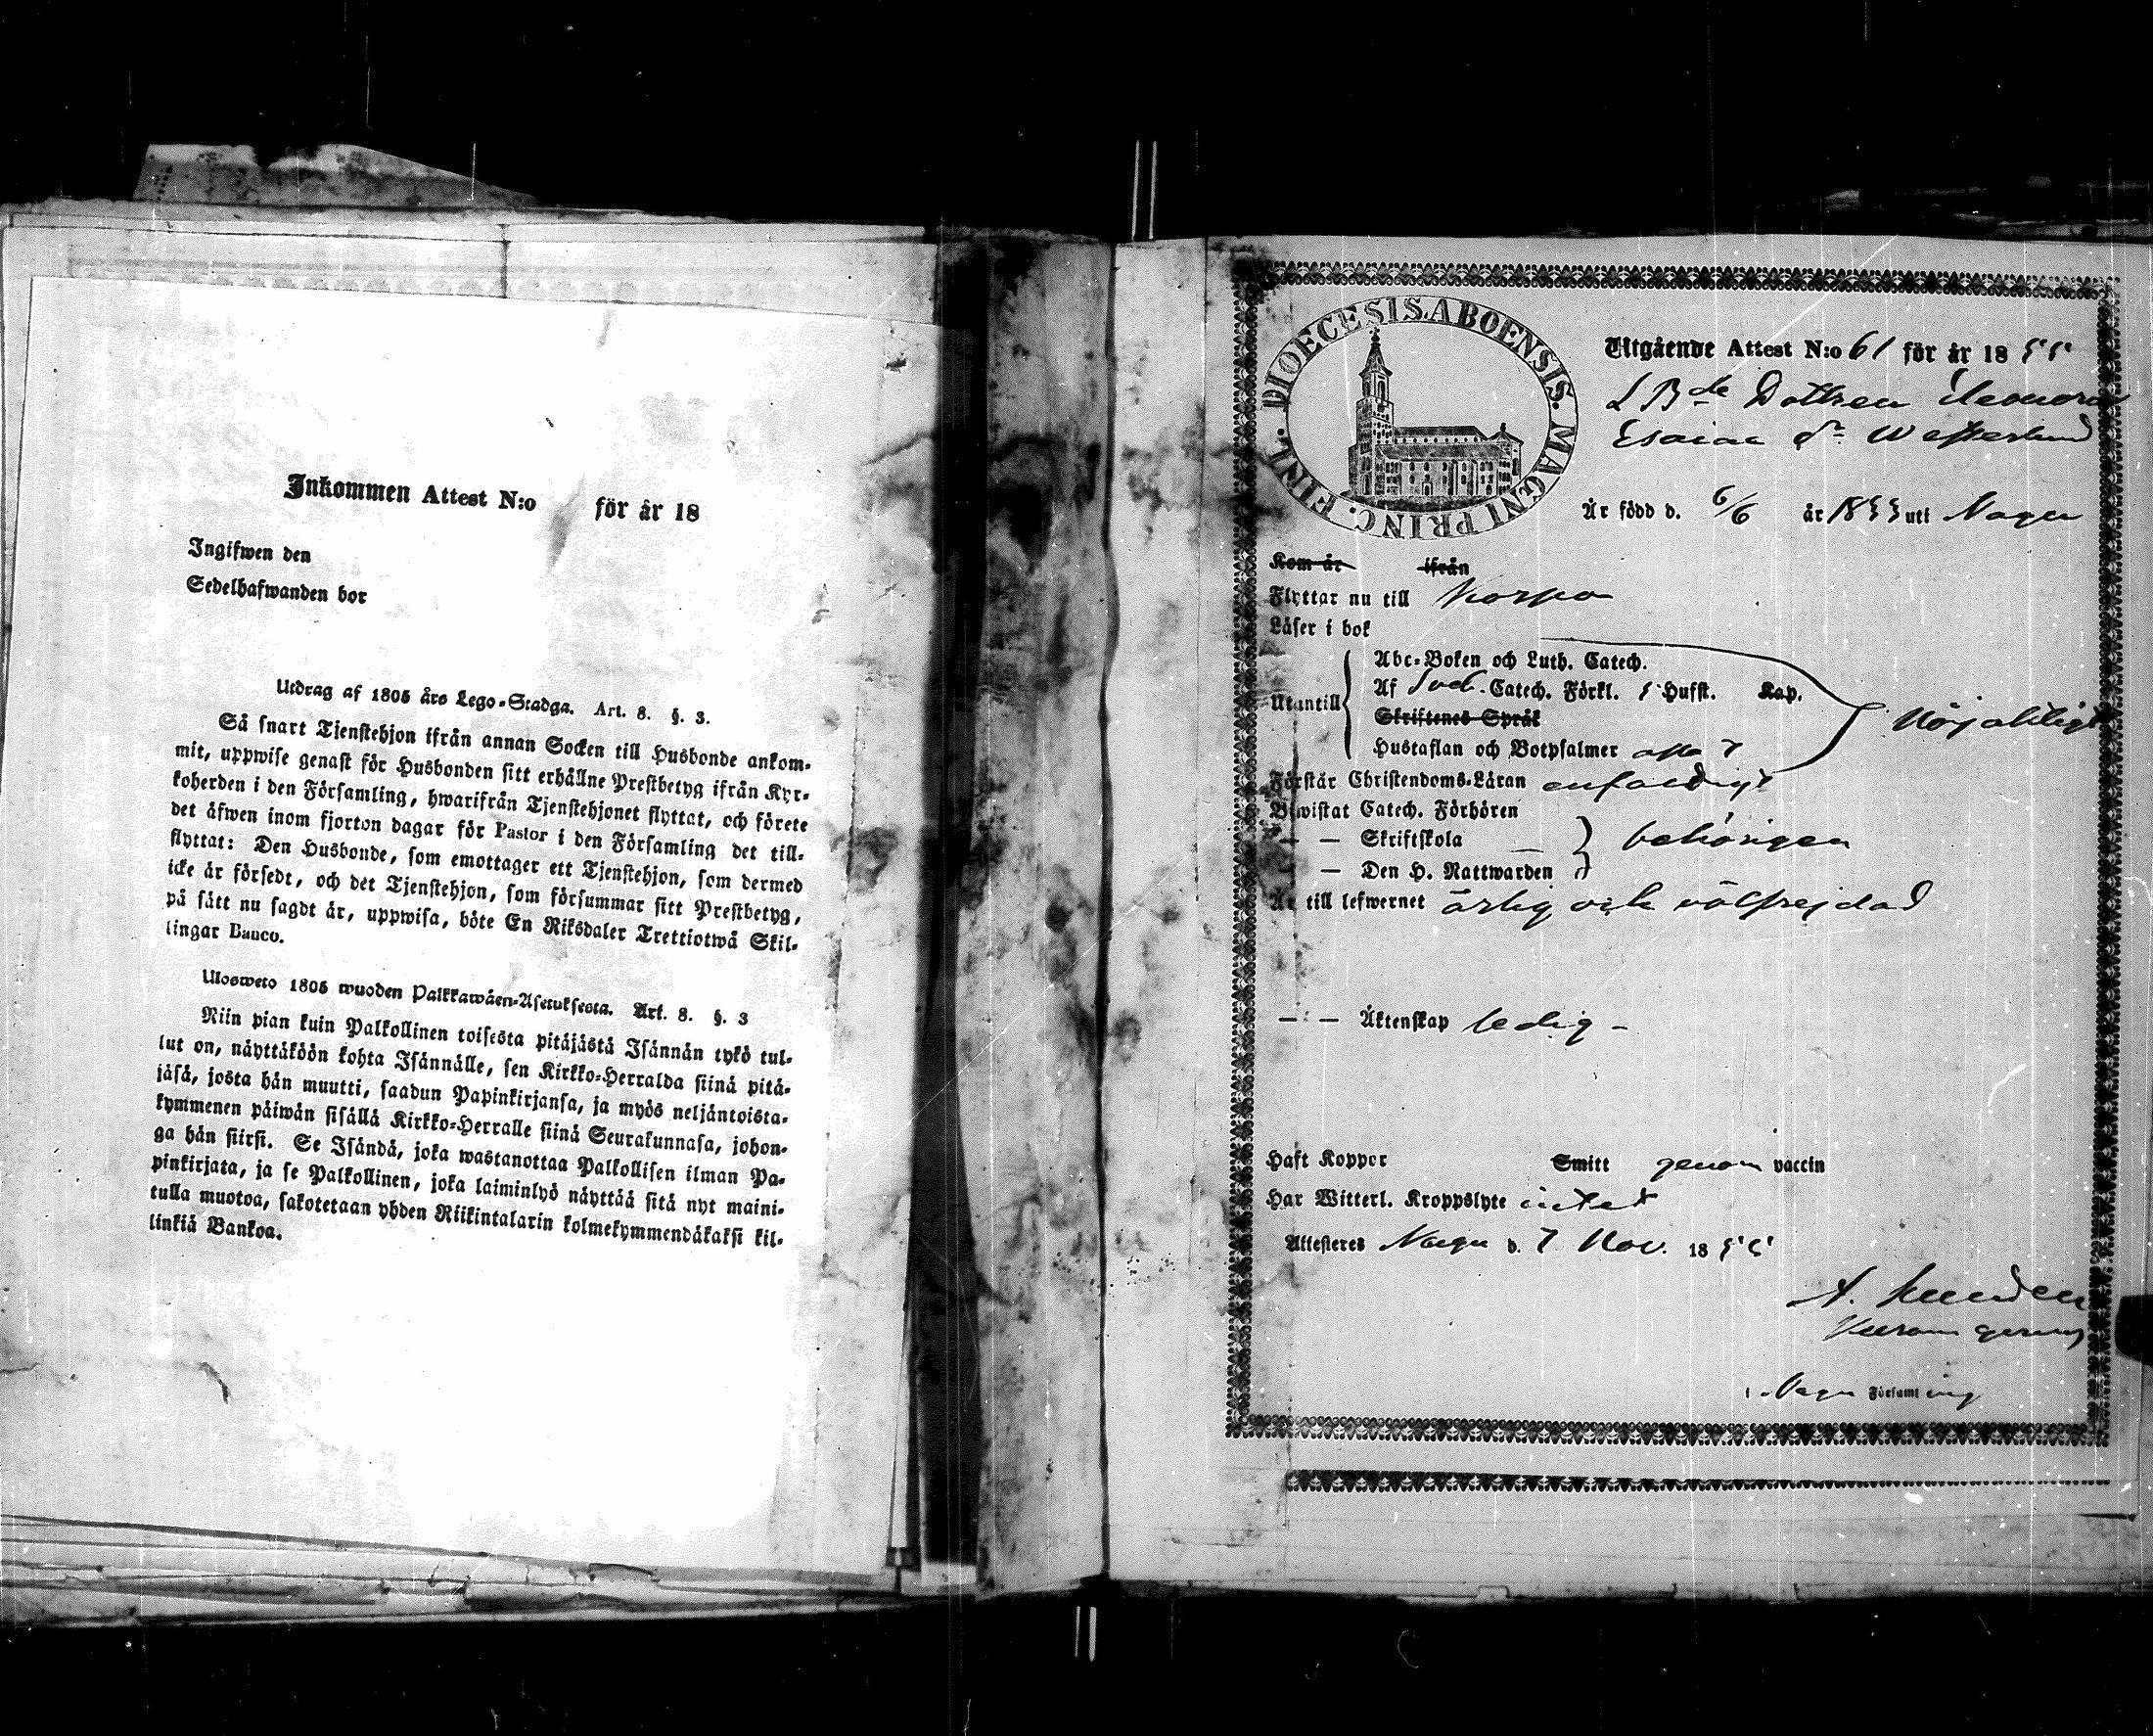 Inkommen Attest N:o för år 18
Ingifwen den
Sedelhafwanden bor
Utdrag af 1805 års Lego-Stadga. Art. 8. §. 3.
Så snart Tjenstehjon ifrån annan Socken till Husbonde ankom-
mit, uppwise genast för Husbonden sitt erhållne Prestbetyg ifrån Kyr-
koherden i den Församling, hwarifrån Tjenstehjonet flyttat, och förete
det äfwen inom fjorton dagar för Pastor i den Församling det till-
flyttat: Den Husbonde, som emottager ett Tjenstehjon, som dermed
icke är försedt, och det Tjenstehjon, som försummar sitt Prestbetyg,
på sätt nu sagdt är, uppwisa, böte En Riksdaler Trettiotwå Skil-
lingar Banco.
Ulosweto 1805 wuoden Palkkawäen-Asetuksesta. Art. 8. §. 3
Niin pian kuin Palkollinen toisesta pitäjästä Isännän tykö tul-
lut on, näyttäköön kohta Isännälle, sen Kirkko-Herralda siinä pitä-
jäsä, josta hän muutti, saadun Papinkirjansa, ja myös neljäntoista-
kymmenen päiwän sisällä Kirkko-Herralle siinä Seurakunnasa, johon-
ga hän siirsi. Se Isändä, joka wastanottaa Palkollisen ilman Pa-
pinkirjata, ja se Palkollinen, joka laiminlyö näyttää sitä nyt maini-
tulla muotoa, sakotetaan yhden Riikintalarin kolmekymmendäkaksi kil-
linkiä Bankoa.
DIOECESIS. ABOENSIS. MAGNI PRINC. FINL.
Utgående Attest N:o 61 för år 1855
Dottren Eleonora
Esaiae dr Westerlund
Är född d. 6/6 år 1833 uti Nagu
Kom år ifrån
Flyttar nu till Korpo
Läser i bok
Abc-Boken och Luth. Catech.
Af Sveb. Catech. Förkl. 5 Hufst. Kap.
Utantill
Skriftenes Språk
nöjaktigt
Hustaflan och Botpsalmer
Förstår Christendoms-Läran enfaldigt
Biwistat Catech. Förhören
— — Skriftskola behörigen
— Den H. Nattwarden
Är till lefwernet ärlig och välfrejdad
— — Äktenskap ledig
Haft Koppor Smitt genom vaccin
Har Witterl. Kroppslyte intet
Attesteras Nagu d. 7 Nov. 1855
A. Lindén
i Nagu Församling